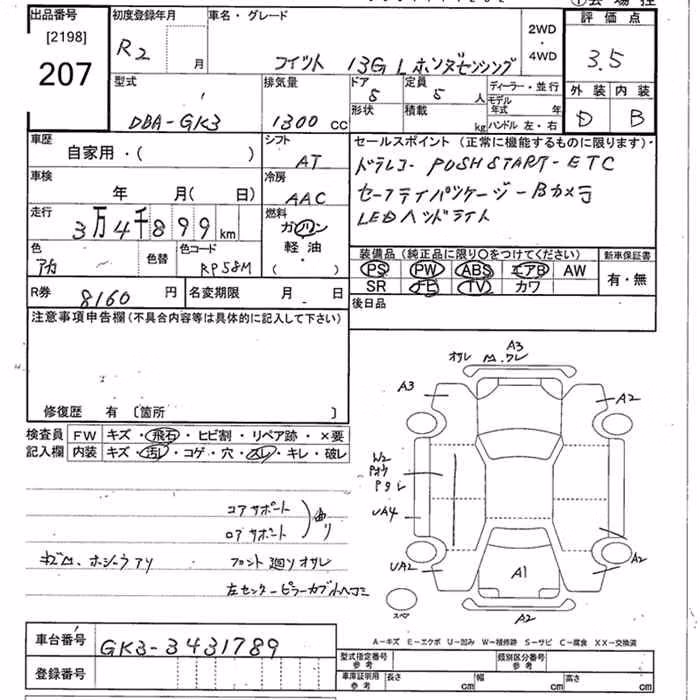 出品番号 初度登録年月 車名・グレード 評価点
[2198]
207
R2 月
フィット 13G L ホンダセンシング
2WD
・
4WD
3.5
型式 排気量 ドア 定員 ディーラー・並行
外装 内装
DBA-GK3 1300 cc
5 5 人
モデル年式 年
形状 積載 kg ハンドル 左・右
D B
車歴 シフト セールスポイント (正常に機能するものに限ります)
自家用・( ) AT
ドラレコー PUSH START - ETC
車検 冷房
年 月( 日) AAC
セーフティパッケージ - Bカメラ
LEDヘッドライト
走行 燃料
3万4千899 km ガソリン
軽油
・
( )
色 色替 色コード
アカ RP58M
装備品 (純正品に限り○をつけてください) 新車保証書
PS PW ABS エアB AW 有・無
SR TV カワ
R券 8160 円 名変期限 月 日
後日品
注意事項申告欄(不具合内容等は具体的に記入して下さい)
修復歴 有 〔箇所 〕
検査員 FW キズ・飛石・ヒビ割・リペア跡・×要
記入欄 内装 キズ・汚レ・コゲ・穴・スレ・キレ・破レ
コアサポート
ロアサポート
曲り
フロント廻りオサレ
左センターピラーカブ小ヘコミ
A3
オサレ
A3
A2
W2
UA4
UA2
A1
A2
A2
スペア
A-キズ E-エクボ U-凹み W-補修跡 S-サビ C-腐食 XX-交換済
車台番号 GK3-3431789
登録番号
型式指定番号 参考 類別区分番号 参考
車庫証明用 参考 長さ cm 幅 cm 高さ cm